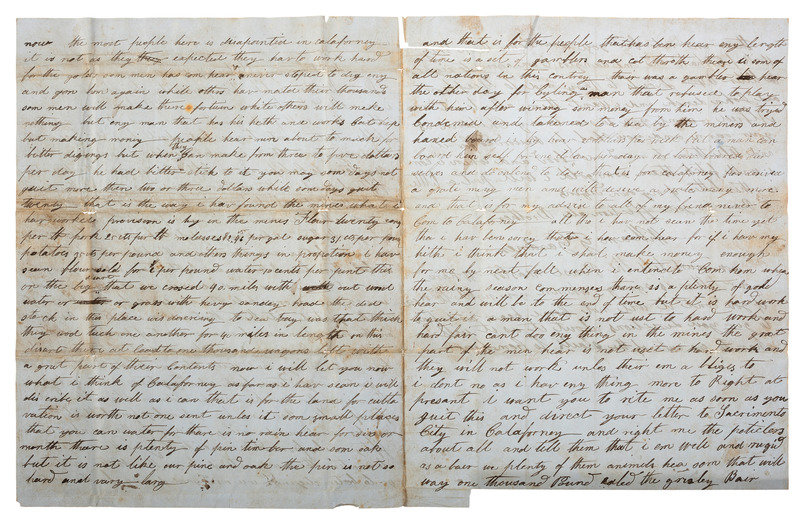 now the most people here is disapointed in calaforney
it is not as they expected they hav to work hard
for the gold som men has com hear never stoped to dig eny
and gon hom again while others hav maid their thousand
som men will make there fortune while others will make
nothing but eny man that has his helth and works but
but making money people hear run about to much for
better digings but when they can make from three to five dollars
per day he had better stick to it you may som days not
more then two or three dollars while som days
twenty that is the way i hav found the mines what i
hav worked provision is hy in the mines flour twenty
per lb pork 25 cts per lb molases per gal sugar 35 cts per poun
potatoes cts per pound and others things in proportion i hav
sean flour sold for per pound water 10 cents per pint this
on the big desert that we crossed 40 miles with out
water or or grass with hevy sandey road the ded
stock in this place was that thick
they wod tuch one another for 4 miles in length on this
disart there at least to one thousand wagons left with
a grat part of their contents now i will let you now
what i think of calaforney as far as i hav sean i will
discribe it as well as i can that is for the land for culta
vation is worth not one sent unless it som small places
that you can water for thare is no rain hear for six or
month thare is plenty of pin timber and som oak
but it is not like our pine and oak the pin is not so
hard and vary larg
and that is for the people that has ben hear eny length
of time is a set of gamblers and cut throth thear is som of
all nations in this contry thair was a gambler hear
the other day for man that refused to play
with him after wining som money from him he was tryed
condemed and to a tree by the miners and
hanged board is hy hear dollars per week but a man can
board him self for one dollar
selves and that is for calaforney has
a grate meny men and will a grate meny more
and that is for my advise to all of my friend never to
com to Calaforney all tho i hav not sean the time yet
that i hav ben sorey that i hav com hear for if i hav my
helth i think that i shal make money enough
for me by next fall when i entend to com hom when
the rainy season commenses thare is a plenty of gold
hear and will be to the end of time but it is hard work
to git it a man that is not ust to hard work and
hard fair cant doo eny thing in the mines the grat
part of the men hear is not ust to hard work and
they will not work unles their em a bliged to
i dont no as i hav eny thing more to Right at
presant I want you to rite me as soon as you
git this and direct your letter to Sacrimento
City in Calaforney and right me the peticlars
about all and tell them that i em well and
as a bair we plenty of them animels hear som that will
way one thousand Pund caled the grisley Bair